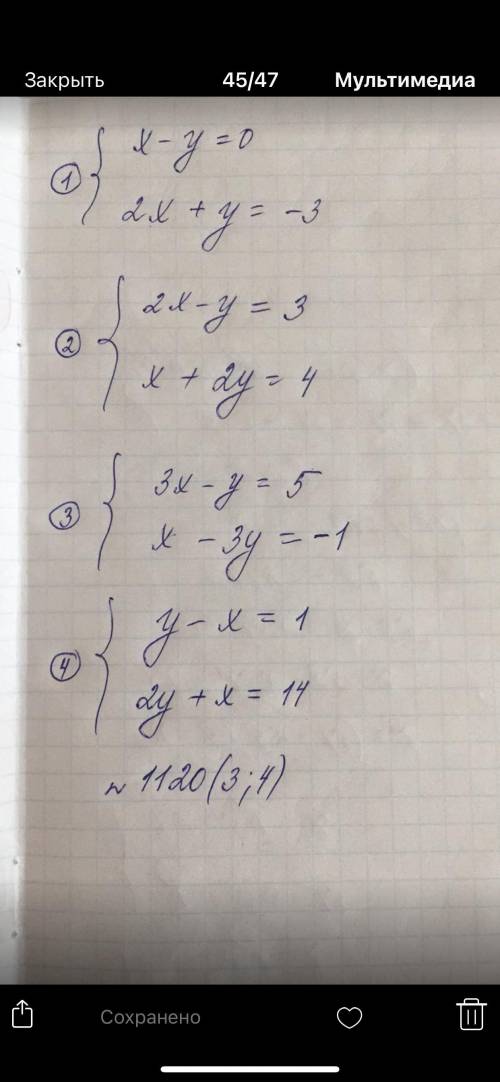 Закрыть 45/47 Мультимедиа
x - y = 0
①
2x + y = -3
2x - y = 3
②
x + 2y = 4
3x - y = 5
③
x - 3y = -1
y - x = 1
④
2y + x = 14
~ 1120 (3;4)
Сохранено